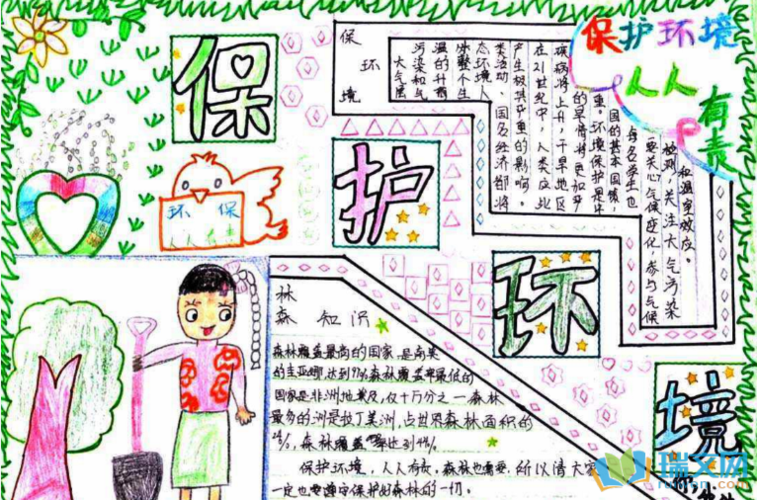 保护环境
人人
有责
保
护
环
境
保
环
境
大气属
污染和气
温的升高
态环境人
产生极其严重的影响。
在21世纪中，人类应此
疾病将上升，干旱地区
的旱情将更加严
重。环境保护是中
国的基本国策，
每名学生也
要关心气候变化，参与气候
检测，关注大气污染
和温室效应。
环保
人人有责
林
森 知识
森林覆盖最高的国家是南美
的圭亚那,达到97%森林覆盖率最低的
国家是非洲地埃及,仅十万分之一森林
最多的洲是拉丁美洲,占世界森林面积的
24%,森林覆盖率达到44%
保护环境,人人有责,森林也需要,所以请大家
一定也要遵守保护好森林的一切。
瑞文网